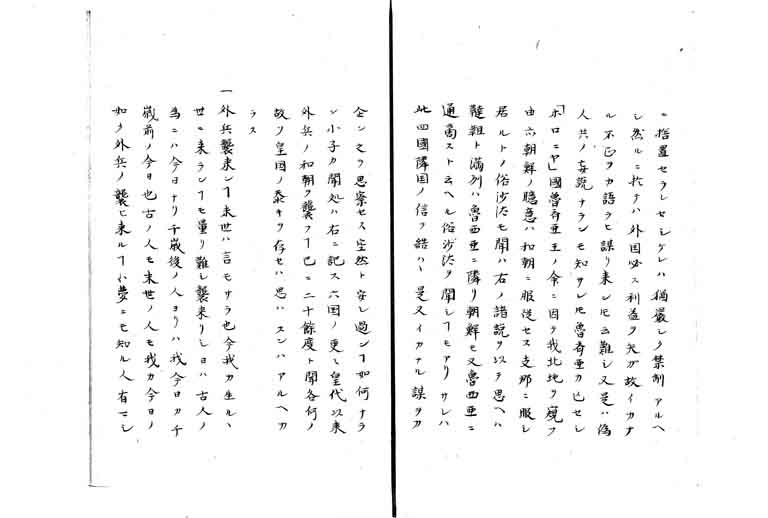 ニ指置セラレセシケレハ猶厳シク禁制アルヘ
シ然ルニ於テハ外国必ス利益ヲ失フ故イカナ
ル不正ヲカ語ラヒ謀リ来ンモ云難シ又是ハ偽
人共ノ妄説ナランモ知サレ𪜈魯斉亜カヒセシ
「ホロニヤ」國魯斉亜王ノ命ニ因テ我北地ヲ窺フ
由亦朝鮮ノ臆意ハ和朝ニ服従セス支那ニ服シ
居ルトノ俗沙汰モ聞ハ右ノ諸説ヲ以テ思ヘハ
韃靼ト満州ハ魯西亜ニ隣リ朝鮮モ又魯西亜ニ
通商スト云ヘル俗沙汰ヲ聞シヿモアリサレハ
此四國隣国ノ信ヲ錯ハヽ是又イカナル謀ヲカ
企ンヲ思案セス空然ト安シ過シテ如何ナラ
ン小子カ聞処ハ右ニ記ス六国ノ更ニ皇代以来
外兵ノ和朝ヲ襲フヿ已ニ二十餘度ト聞各何ノ
故ソ皇国ノ泰キヲ存セハ思ハスンハアルヘカ
ラス
一外兵襲来シテ末世ハ言モサラ也今我カ生ルヽ
世ニ来ランヿモ量リ難シ襲来リシヨハ古人ノ
為ニハ今日ナリ千歳後ノ人ヨリハ我今日カ千
歳前ノ今日也古ノ人モ末世ノ人モ我カ今日ノ
如ク外兵ノ襲ヒ来ルヿハ夢ニモ知ル人有マシ